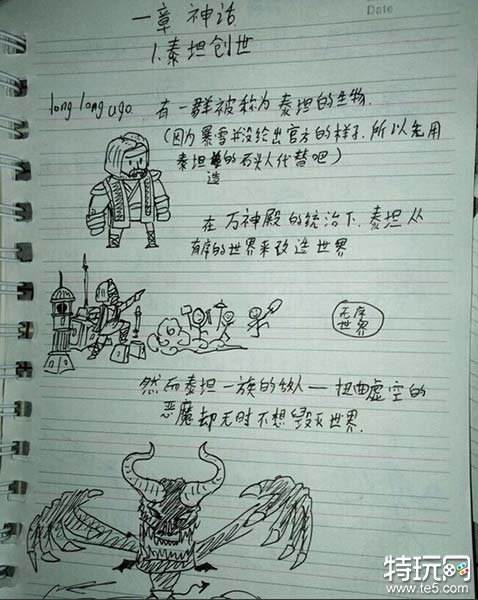 一章 神话
Date
1.泰坦创世
long long ago 有一群被称为泰坦的生物.
(因为暴雪并没给出官方的样子.所以先用
泰坦造的石头人代替吧)
在万神殿的统治下.泰坦从
有序的世界来改造世界
无序
世界
然而泰坦一族的敌人—扭曲虚空的
恶魔却无时不想毁灭世界.
特玩网
www.te5.com